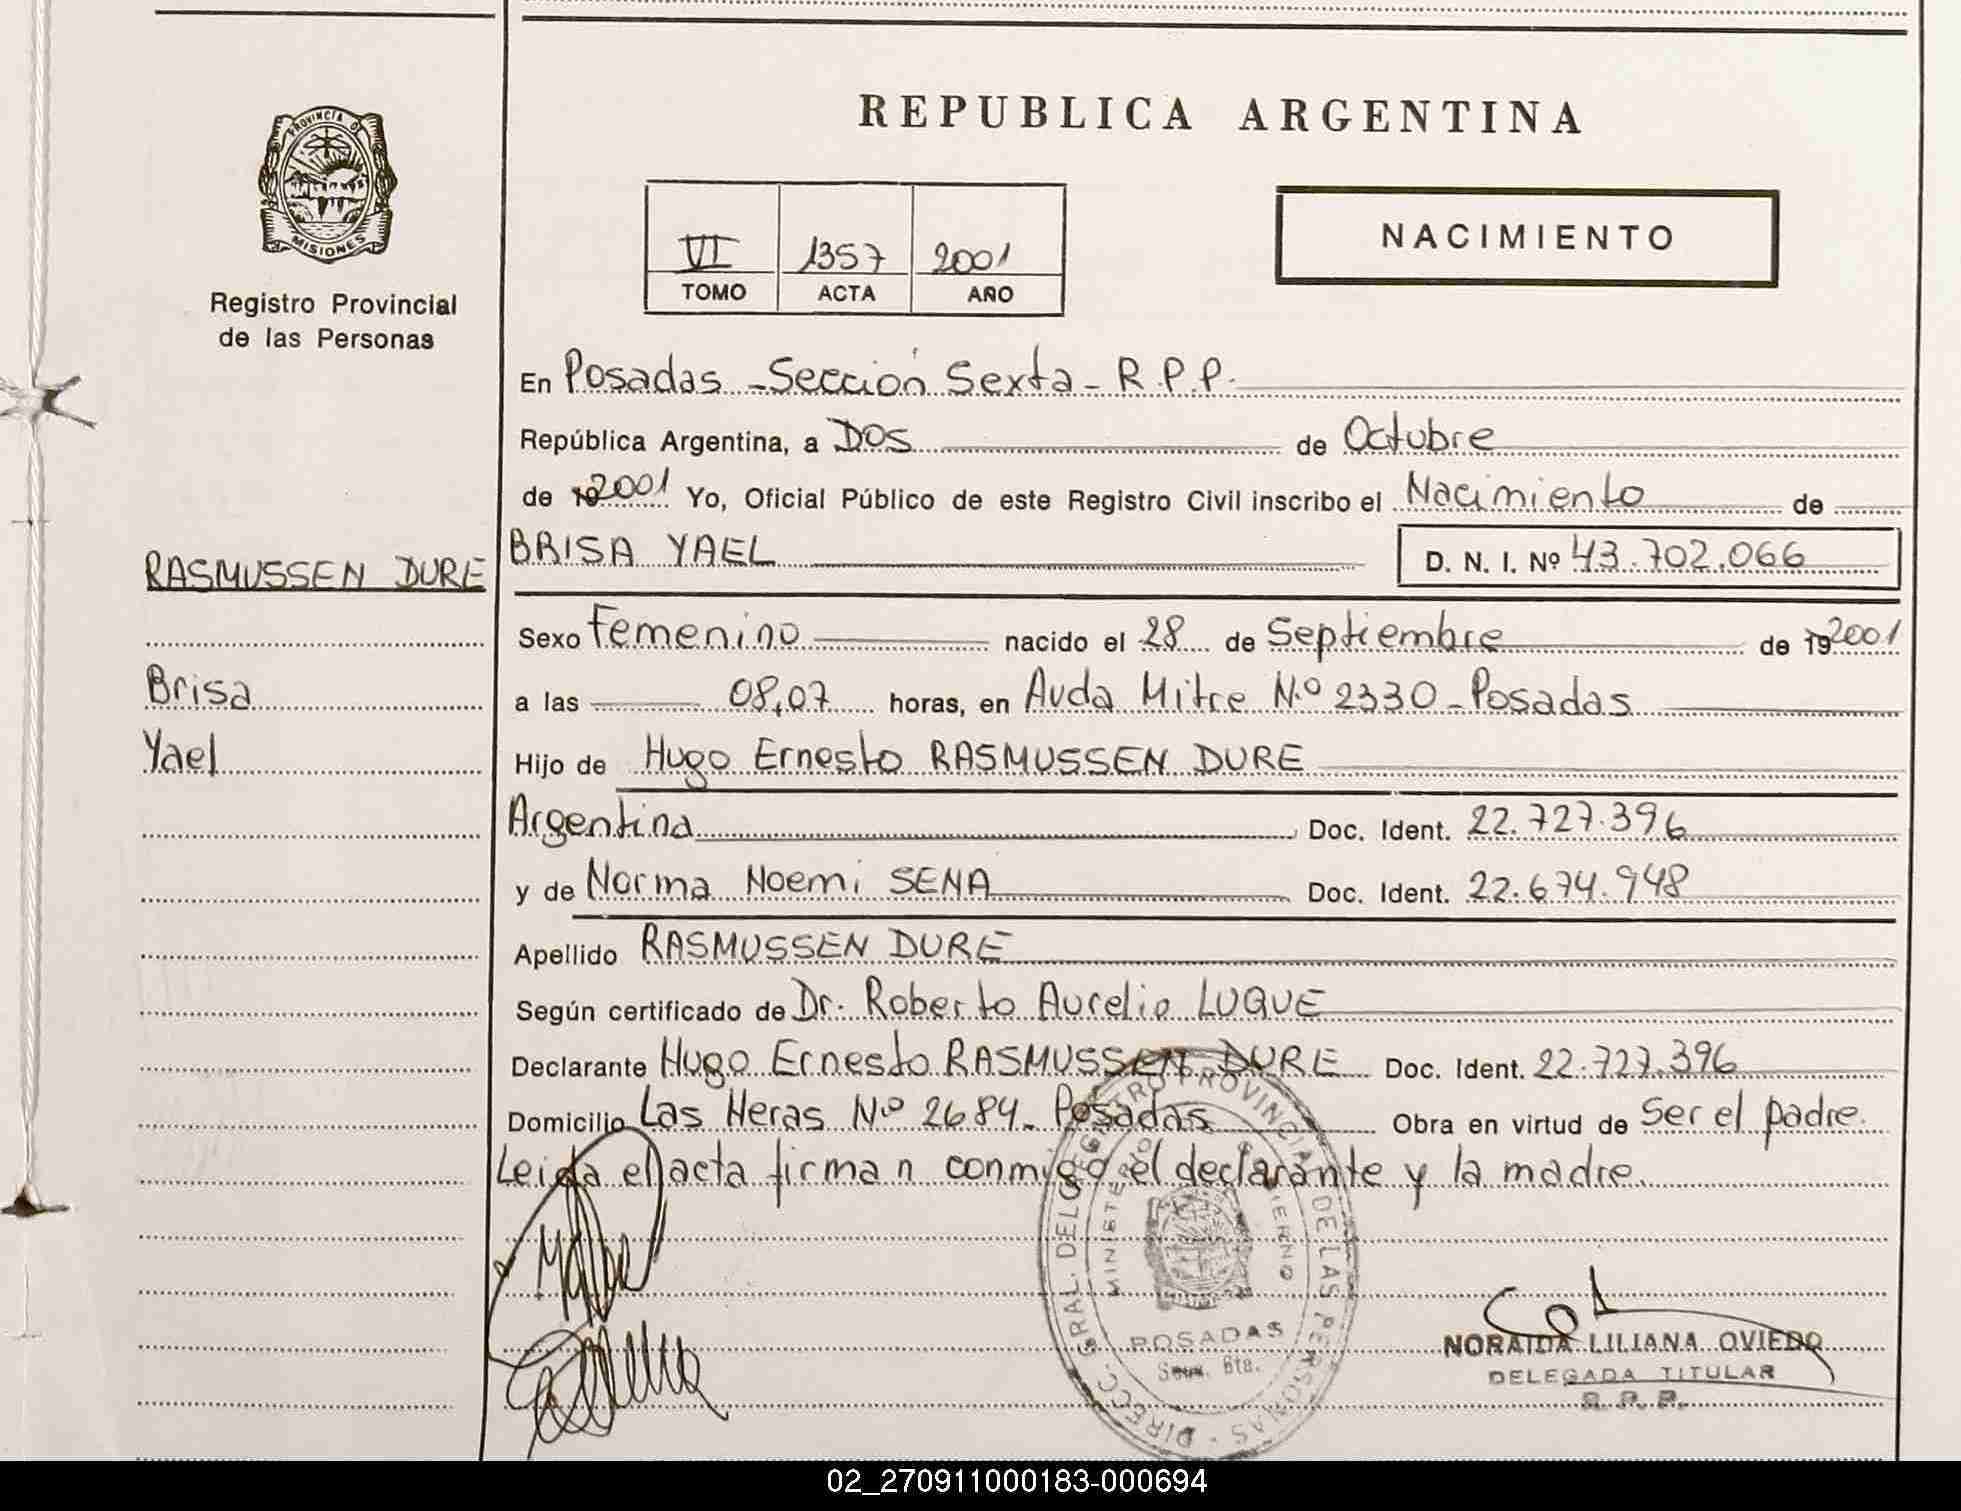 REPUBLICA ARGENTINA
PROVINCIA D
MISIONES
Registro Provincial
de las Personas
VI 1357 2001
TOMO ACTA AÑO
NACIMIENTO
En Posadas - Sección Sexta - R.P.P.
República Argentina, a Dos de Octubre
de 192001 Yo, Oficial Público de este Registro Civil inscribo el Nacimiento de
RASMUSSEN DURE BRISA YAEL D. N. I. Nº 43.702.066
Sexo Femenino nacido el 28 de Septiembre de 192001
Brisa
a las 08,07 horas, en Avda Mitre N.º 2330 - Posadas
Yael
Hijo de Hugo Ernesto RASMUSSEN DURE
Argentina Doc. Ident. 22.727.396
y de Norma Noemi SENA Doc. Ident. 22.674.948
Apellido RASMUSSEN DURE
Según certificado de Dr. Roberto Aurelio LUQUE
Declarante Hugo Ernesto RASMUSSEN DURE Doc. Ident. 22.727.396
Domicilio Las Heras Nº 2684 - Posadas Obra en virtud de Ser el padre.
Leida el acta firman conmigo el declarante y la madre.
DIRECC. GRAL. DEL REGISTRO PROVINCIAL DE LAS PERSONAS
POSADAS
6ta.
NORAIDA LILIANA OVIEDO
DELEGADA TITULAR
R. P. P.
02_270911000183-000694